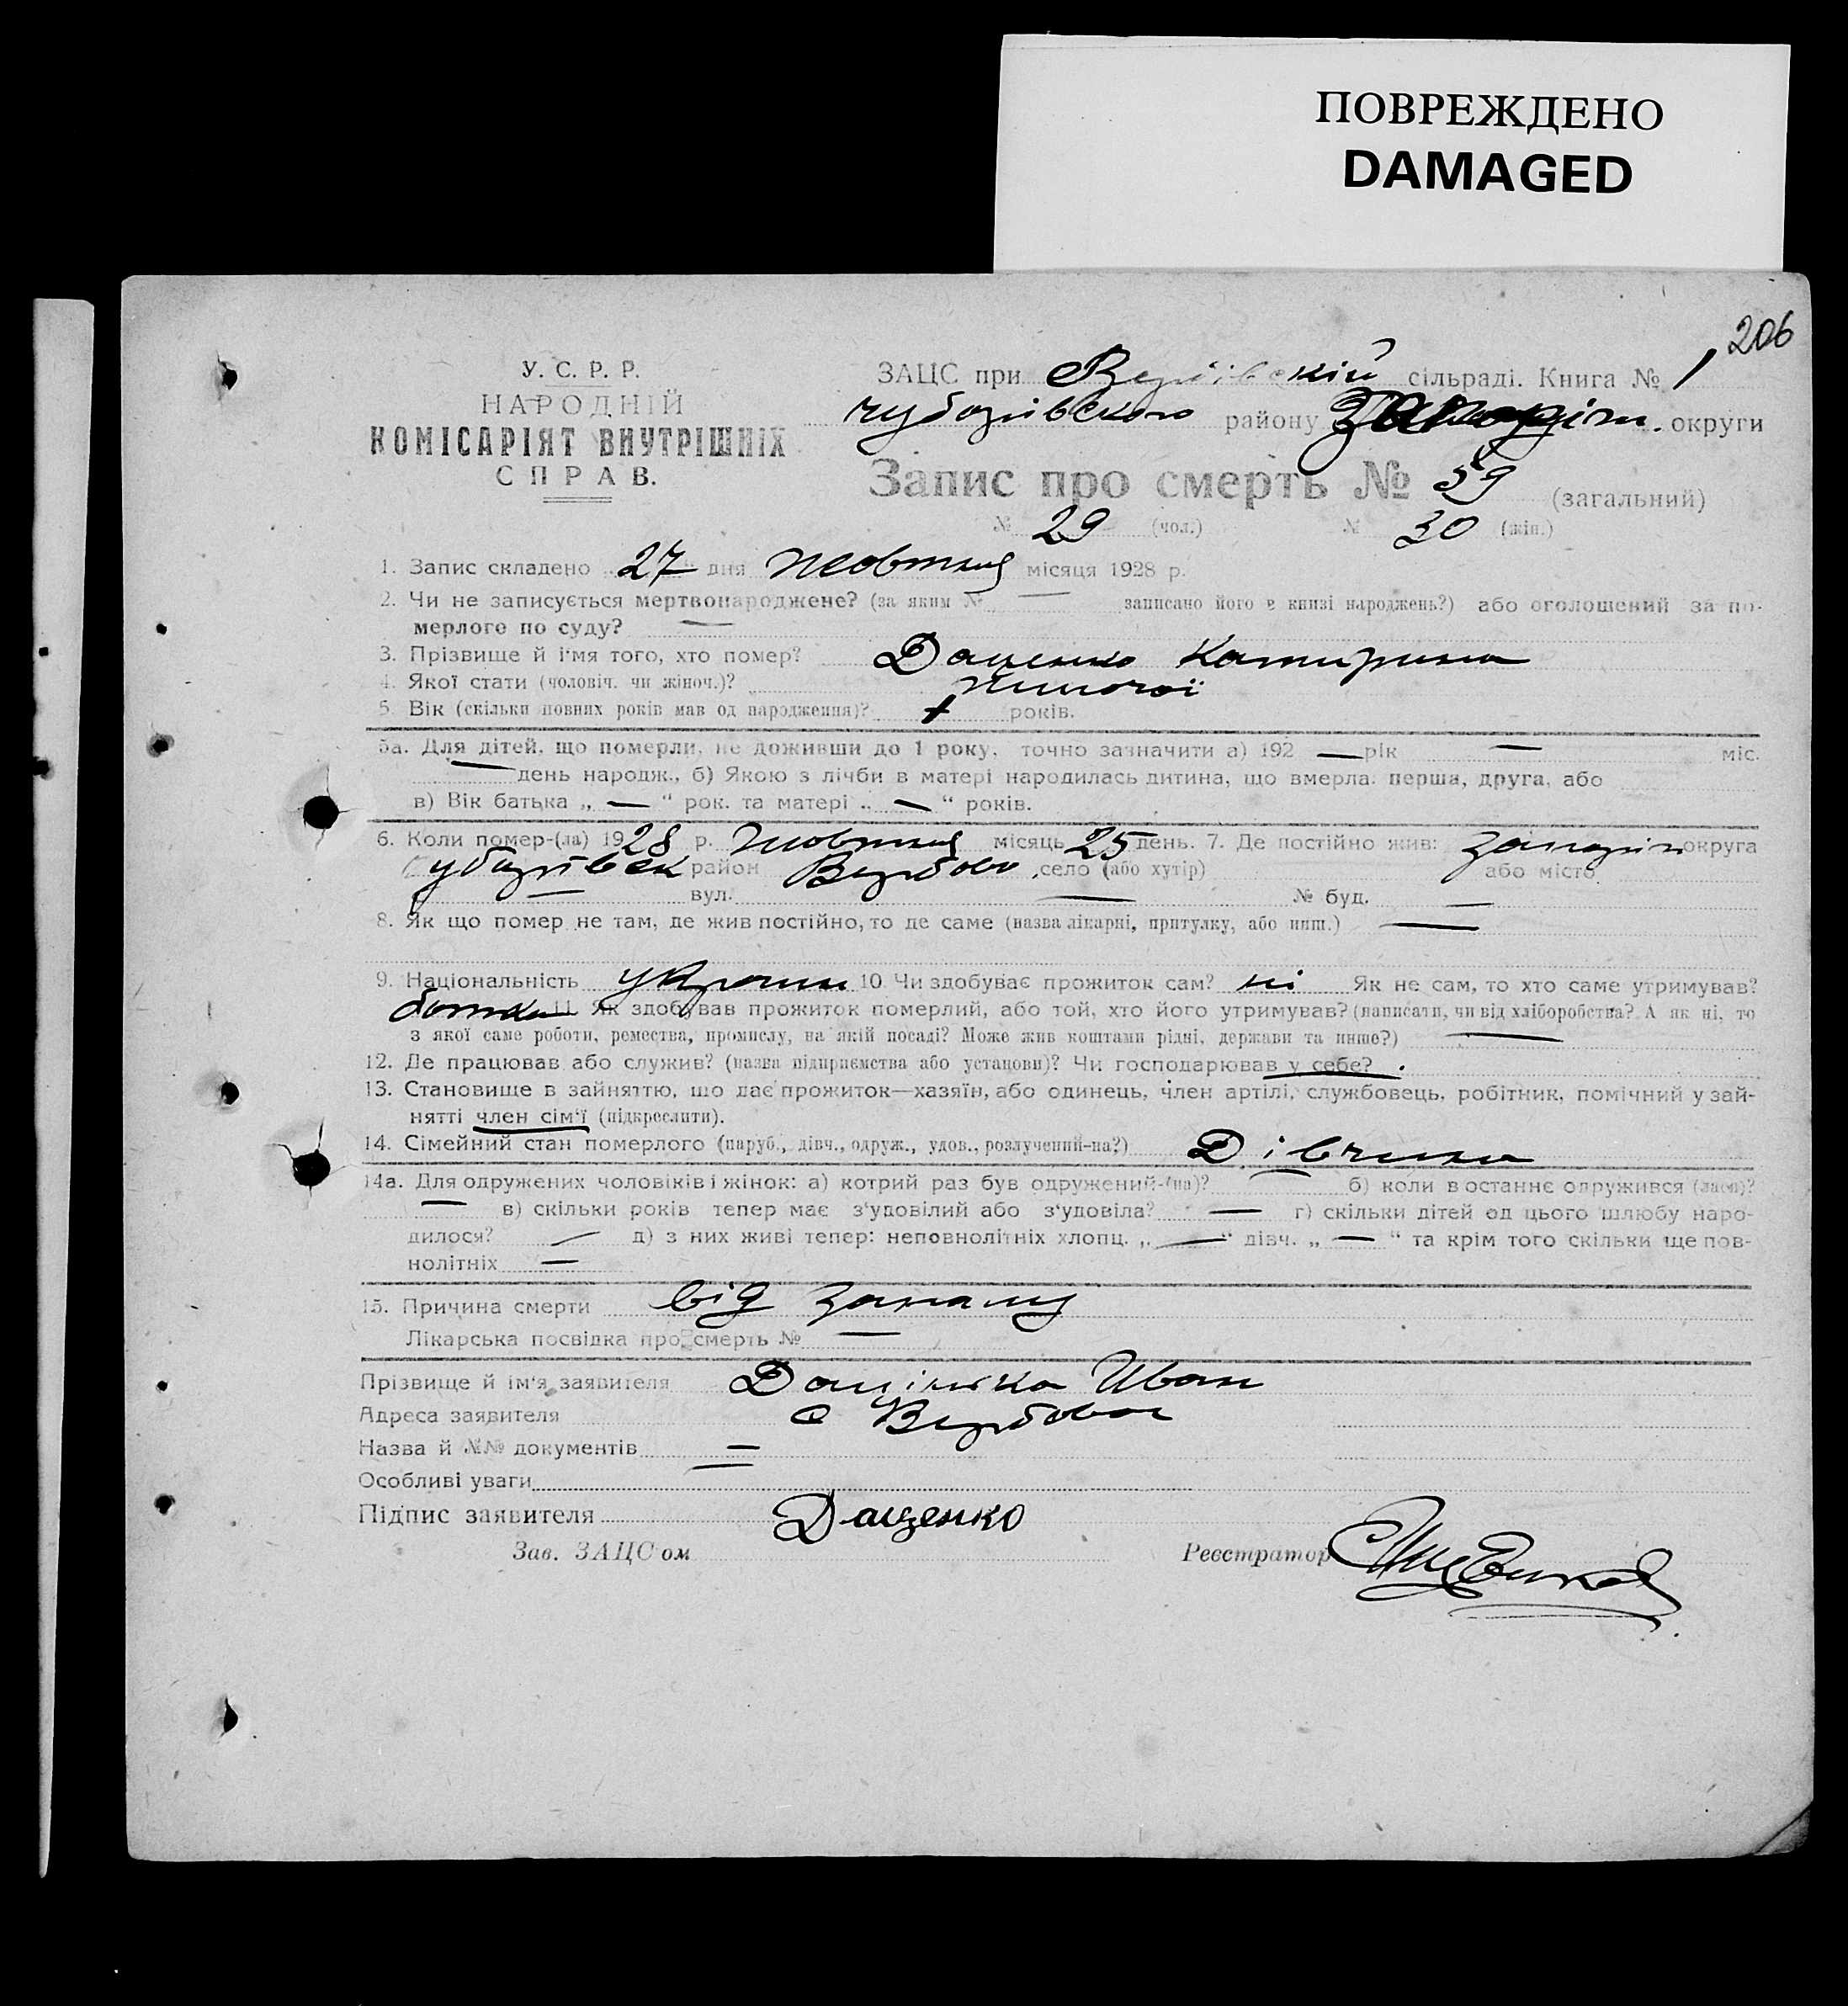 ПОВРЕЖДЕНО
DAMAGED
206
У. С. Р. Р.
НАРОДНІЙ
КОМІСАРІЯТ ВНУТРІШНІХ
СПРАВ.
ЗАЦС при сільраді. Книга № 1
чубарівського району Запоріж. округи
Запис про смерть № 59 (загальний)
№ 29 (чол.) № 30 (жін.)
1. Запис складено 27 дня жовтня місяця 1928 р.
2. Чи не записується мертвонароджене? (за яким № — записано його в книзі народжень?) або оголошений за по-
мерлого по суду? —
3. Прізвище й ім'я того, хто помер? Даценко Катирина
4. Якої стати (чоловіч. чи жіноч.)? жиночої
5. Вік (скільки повних років мав од народження)? років.
5а. Для дітей, що померли, не доживши до 1 року, точно зазначити а) 192 — рік — міс.
— день народж., б) Якою з лічби в матері народилась дитина, що вмерла: перша, друга, або
в) Вік батька „ — “ рок. та матері „ — “ років.
6. Коли помер-(ла) 1928 р. жовтня місяць 25 день. 7. Де постійно жив: Запоріж округа
Чубарівськ район Вербово село (або хутір) або місто
— вул. — № буд. —
8. Як що помер не там, де жив постійно, то де саме (назва лікарні, притулку, або инш.) —
9. Національність україн 10. Чи здобуває прожиток сам? ні Як не сам, то хто саме утримував?
батько 11. Як здобував прожиток померлий, або той, хто його утримував? (написати, чи від хліборобства? А як ні, то
з якої саме роботи, ремества, промислу, на якій посаді? Може жив коштами рідні, держави та инше?) —
12. Де працював або служив? (назва підприємства або установи)? Чи господарював у себе? .
13. Становище в зайняттю, що дає прожиток—хазяїн, або одинець, член артілі, службовець, робітник, помічний у зай-
нятті член сім'ї (підкреслити).
14. Сімейний стан померлого (паруб., дівч., одруж., удов., розлучений-на?) Дівчина
14а. Для одружених чоловіків і жінок: а) котрий раз був одружений-(на)? — б) коли востаннє одружився (лася)?
— в) скільки років тепер має з'удовілий або з'удовіла? — г) скільки дітей од цього шлюбу наро-
дилося? — д) з них живі тепер: неповнолітніх хлопц. „ — “ дівч. „ — “ та крім того скільки ще пов-
нолітніх —
15. Причина смерти від запалу
Лікарська посвідка про смерть № —
Прізвище й ім'я заявителя Иван
Адреса заявителя с Вербове
Назва й №№ документів —
Особливі уваги —
Підпис заявителя Даценко
Зав. ЗАЦС'ом Реєстратор